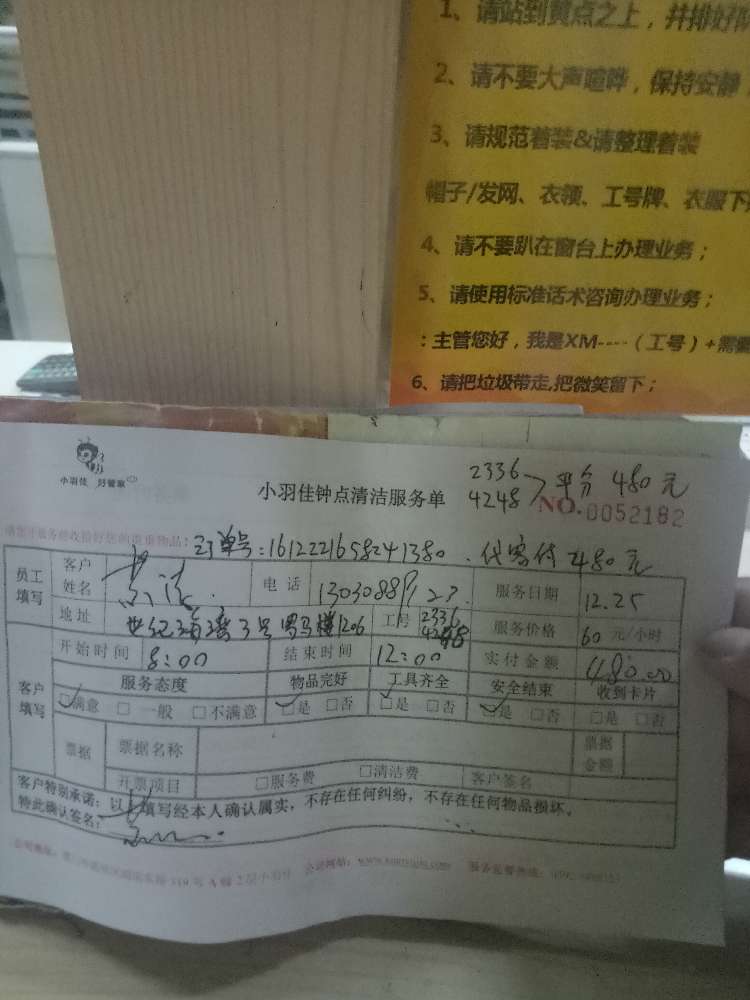 1、请站到黄点之上，并排好队
2、请不要大声喧哗，保持安静
3、请规范着装&请整理着装
帽子/发网、衣领、工号牌、衣服下
4、请不要趴在窗台上办理业务；
5、请使用标准话术咨询办理业务；
：主管您好，我是XM----（工号）+需
6、请把垃圾带走,把微笑留下；
小羽佳 好管家
小羽佳钟点清洁服务单
2336
4248 平分 480元
NO.0052182
订单号：1612221658241380 . 代客付480元
员工填写 客户姓名 电话 服务日期 12.25
地址 世纪 3号 罗马楼1206 工号 2336 4248 服务价格 60 元/小时
客户填写 开始时间 8:00 结束时间 12:00 实付金额 480.00
服务态度 物品完好 工具齐全 安全结束 收到卡片
□满意 □一般 □不满意 □是 □否 □是 □否 □是 □否 □是 □否
票据 票据名称 票据金额
开票项目 □服务费 □清洁费 客户签名
客户特别承诺：以上填写经本人确认属实，不存在任何纠纷，不存在任何物品损坏。
特此确认签名：